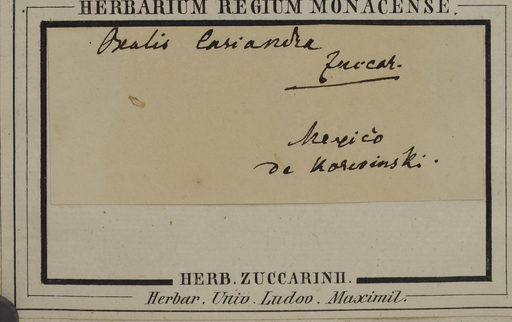 HERBARIUM REGIUM MONACENSE.
Oxalis Lasiandra
Zuccar.
Mexico
de Karwinski.
HERB. ZUCCARINII.
Herbar. Univ. Ludov. Maximil.